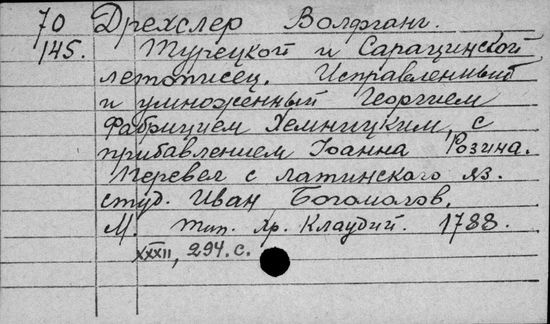 70 Дрехслер Волфганг.
145. Турецкой и Сарацинской
летописец. Исправленный
и умноженный Георгием
Фабрицием Хемницким, с
прибавлением Иоанна Розина.
Перевел с латинского яз.
студ. Иван Богомолов.
М. тип. Хр. Клаудий. 1788.
XXXII, 294. с.